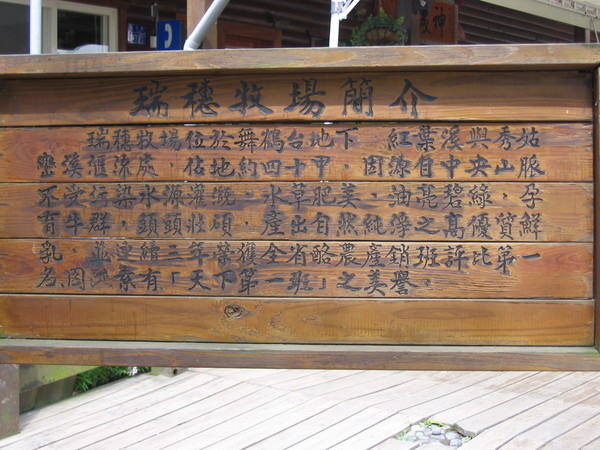 瑞穗牧場簡介
瑞穗牧場位於舞鶴台地下 紅葉溪與秀姑
巒溪滙流處，佔地約四十甲，因源自中央山脈
不受污染水源灌溉，水草肥美，油亮碧綠，孕
育牛群，頭頭壯碩，產出自然純淨之高優質鮮
乳，並連續三年榮獲全省酪農產銷班評比第一
名，因此素有「天下第一班」之美譽。